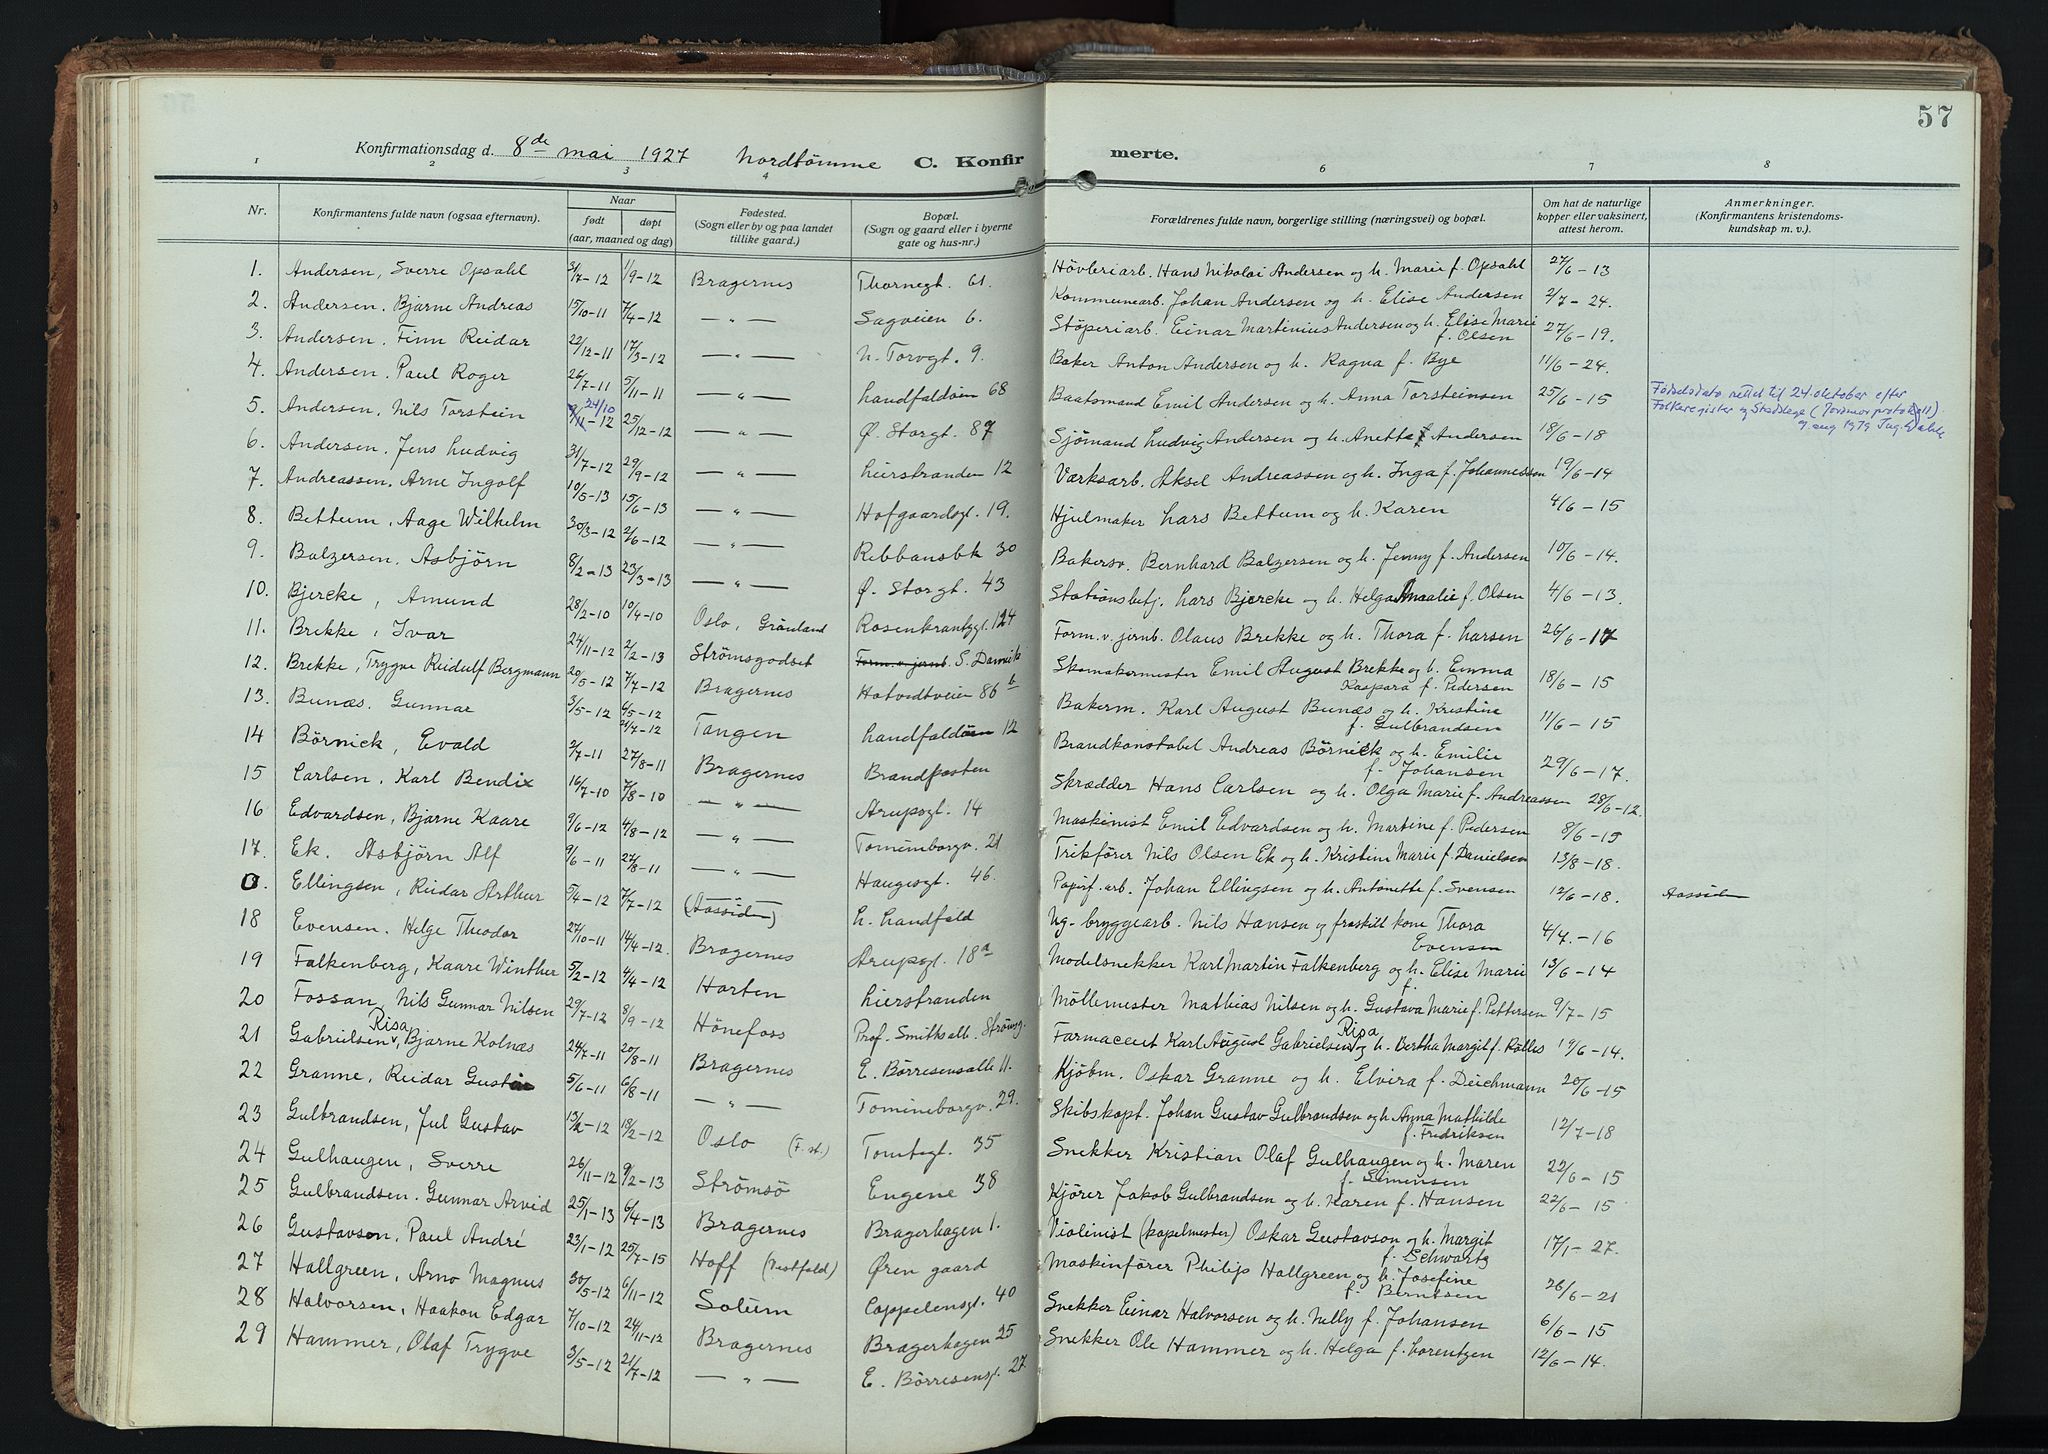 57
Konfirmationsdag d. 8de mai 1927 Nordtömme C. Konfirmerte.
1 2 3 4 6 7 8
Nr. Konfirmantens fulde navn (ogsaa efternavn). Naar født døpt (aar, maaned og dag) Fødested. (Sogn eller by og paa landet tillike gaard.) Bopæl. (Sogn og gaard eller i byerne gate og hus-nr.) Forældrenes fulde navn, borgerlige stilling (næringsvei) og bopæl. Om hat de naturlige kopper eller vaksinert, attest herom. Anmerkninger. (Konfirmantens kristendomskundskap m. v.).
1. Andersen, Sverre Opsahl 3/7-12 1/9-12 Bragernes Thornegt. 61. Hövleriarb. Hans Nikolai Andersen og h. Marie f. Opsahl 27/6-13
2. Andersen, Bjarne Andreas 15/10-11 7/4-12 — " — Sagveien 6. Kommunearb. Johan Andersen og h. Elise Andersen 2/7-24.
3. Andersen. Finn Reidar 22/12-11 17/3-12 — " — N. Torvgt. 9. Støperiarb. Einar Martinius Andersen og h. Elise Marie f. Olsen 27/6-19.
4. Andersen. Paul Roger 26/7-11 5/11-11 — " — Landfaldöen 68 Baker Anton Andersen og h. Ragna f. Bye 11/6-24.
5. Andersen, Nils Torstein 24/10 9/11-12 25/12-12 — " — Ø. Storgt. 87 Baatsmand Emil Andersen og h. Anna Torsteinsen 25/6-15 Fødselsdato rettet til 24. oktober efter Folkeregister og Stadslege (Jordmorprotokoll) 9. aug 1979
6. Andersen, Jens Ludvig 31/7-12 29/9-12 — " — Lierstranden 12 Sjömand Ludvig Andersen og h. Anetta f. Andersen 18/6-18
7. Andreassen, Arne Ingolf 10/5-13 15/6-13 — " — Hofgaardsgt. 19. Værksarb. Aksel Andreassen og h. Inga f. Johannessen 19/6-14
8. Bettum, Aage Wilhelm 30/3-12 2/6-12 — " — Ribbansbk 30 Hjulmaker Lars Bettum og h. Karen 4/6-15
9. Balzersen, Asbjörn 8/2-13 23/3-13 — " — Ø. Storgt. 43 Bakersv. Bernhard Balzersen og h. Jenny f. Andersen 10/6-14.
10. Bjercke, Amund 28/2-10 10/4-10 Oslo, Grönland Rosenkrantzgt. 124 Stationsbetj. Lars Bjercke og h. Helga Amalie f. Olsen 4/6-13.
11. Brekke, Ivar 24/11-12 2/2-13 Strömsgodset Form. v. jernb. S. Danvik Form. v. jernb. Olaus Brekke og h. Thora f. Larsen 26/6-17
12. Brekke, Trygve Reidulf Bergmann 20/5-12 7/7-12 Bragernes Hotvedtveien 86b Skomakermester Emil August Brekke og h. Emma Kaspara f. Pedersen 18/6-15
13. Bunæs. Gunnar 3/5-12 6/5-12 21/7-12 Tangen Landfaldöen 12 Bakerm. Karl August Bunæs og h. Kristine f. Gulbrandsen 11/6-15
14 Börnick, Evald 2/7-11 27/8-11 Bragernes Brandposten Brandkonstabel Andreas Börnick og h. Emilie f. Johansen 29/6-17.
15 Carlsen, Karl Bendix 16/7-10 7/8-10 — " — Arupsgt. 14 Skrædder Hans Carlsen og h. Olga Marie f. Andreassen 28/6-12.
16 Edvardsen, Bjarne Kaare 9/6-12 4/8-12 — " — Tomineborgv. 21 Maskinist Emil Edvardsen og h. Martine f. Pedersen 8/6-15
17. Ek. Asbjörn Alf 9/6-11 27/8-11 — " — Haugesgt. 46. Trikfører Nils Olsen Ek og h. Kristine Marie f. Danielsen 13/8-18.
0. Ellingsen, Reidar Arthur 5/4-12 7/7-12 (Aassiden) L. Landfald Papirf. arb. Johan Ellingsen og h. Antonette f. Svensen 12/6-18. Aassiden
18 Evensen. Helge Theodor 27/10-11 14/4-12. Bragernes Arupsgt. 18a Ug- bryggearb. Nils Hansen og fraskilt kone Thora Evensen 4/7.-16
19 Falkenberg, Kaare Winther 5/2-12 4/4-12 Horten Lierstranden Modelsnekker Karl Martin Falkenberg og h. Elise Marie f. 13/6-14
20 Fossan, Nils Gunnar Nilsen 29/7-12 8/9-12 Hönefoss Prof. Smithsalle. Strömsg. Möllemester Mathias Nilsen og h. Gustava Marie f. Pettersen 9/7-15
21 Gabrielsen Risa, Bjarne Kolnæs 24/7-11 20/8-11 Bragernes E. Börresensalle 11. Farmaceut Karl August Gabrielsen Risa og h. Bertha Margit f. 19/6-14.
22 Granne, Reidar Gustav 5/6-11 6/8-11 — " — Tomineborgv. 29. Kjöbm. Oskar Granne og h. Elvira f. Deichmann 20/6-15
23 Gulbrandsen, Jul Gustav 13/2-12 18/2-12 Oslo (F. st.) Tomtegt. 35 Skibskapt. Johan Gustav Gulbrandsen og h. Anna Mathilde f. Fredriksen 12/7-18
24 Gulhaugen, Sverre 26/11-12 9/2-13 Strömsö Engene 38 Snekker Kristian Olaf Gulhaugen og h. Maren f. Simensen 22/6-15
25 Gulbrandsen. Gunnar Arvid 25/1-13 6/4-13 Bragernes Bragerhagen 1. Kjörer Jakob Gulbrandsen og h. Karen f. Hansen 22/6-15
26 Gustavson, Paul André 23/1-12 25/7-15 Hoff (Vestfold) Øren gaard Violinist (kapelmester) Oskar Gustavson og h. Margit f. Schwartz 17/1-27.
27 Hallgreen, Arno Magnus 30/5-12 6/11-12 Solum Cappelensgt. 40 Maskinfører Philip Hallgreen og h. Josefine f. Berntsen 26/6-21
28 Halvorsen, Haakon Edgar 7/10-12 24/11-12 Bragernes Bragerhagen 25 Snekker Einar Halvorsen og h. Nelly f. Johansen 6/6-15
29 Hammer, Olaf Trygve 3/5-12 21/7-12 — " — E. Börresensgt. 27 Snekker Ole Hammer og h. Helga f. Lorentzen 12/6-14.